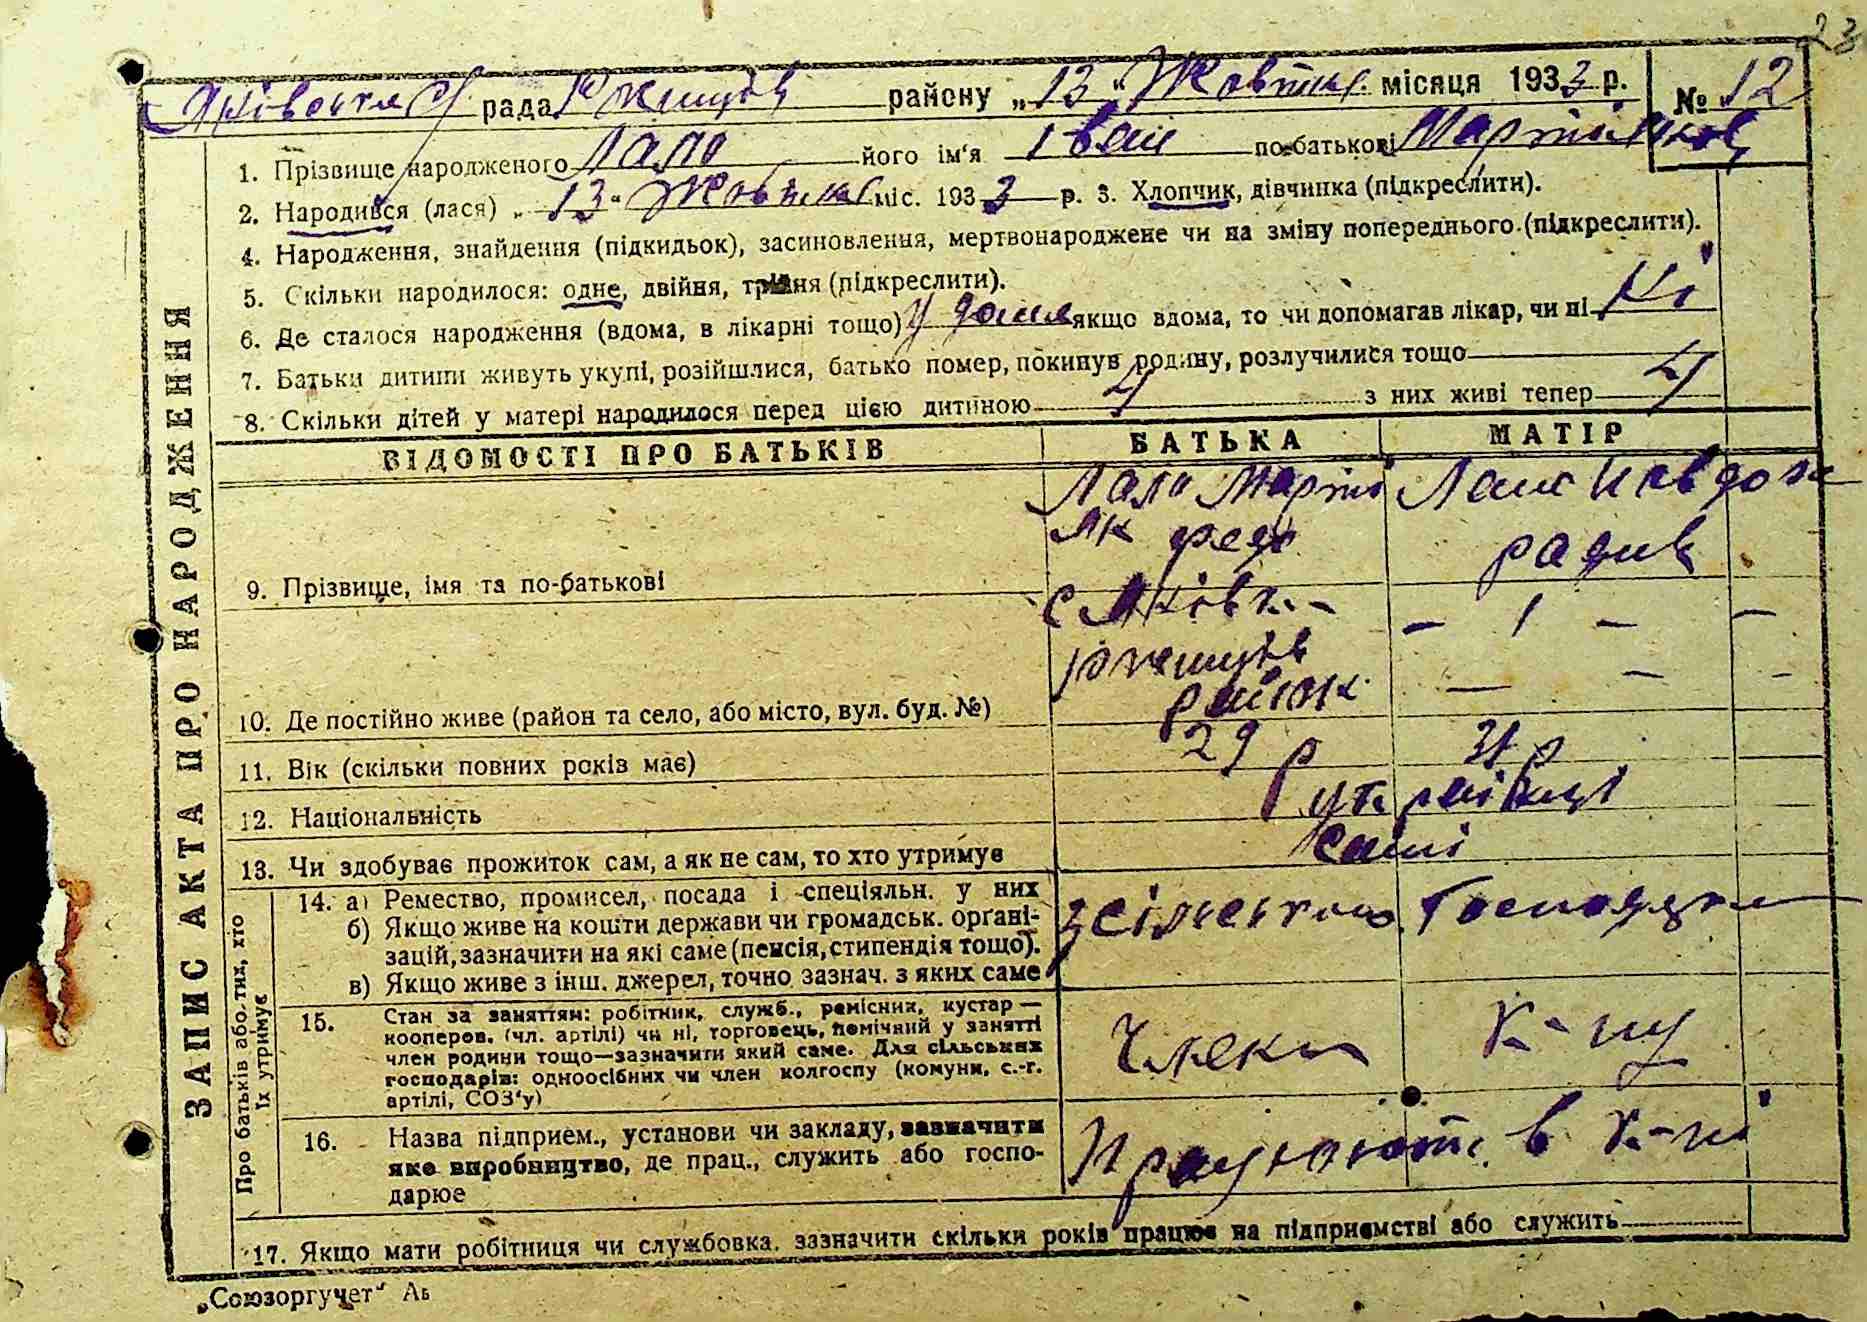 23
рада Ржищів району „13" Жовтня місяця 1933 р. № 12
1. Прізвище народженого Лапа його ім'я Іван по-батькові
2. Народився (лася) „13" Жовтня міс. 1933 р. 3. Хлопчик, дівчинка (підкреслити).
4. Народження, знайдення (підкидьок), засиновлення, мертвонароджене чи на зміну попереднього (підкреслити).
5. Скільки народилося: одне, двійня, трійня (підкреслити).
6. Де сталося народження (вдома, в лікарні тощо) у дома якщо вдома, то чи допомагав лікар, чи ні Ні
7. Батьки дитини живуть укупі, розійшлися, батько помер, покинув родину, розлучилися тощо
8. Скільки дітей у матері народилося перед цією дитиною 4 з них живі тепер 4
ЗАПИС АКТА ПРО НАРОДЖЕННЯ
ВІДОМОСТІ ПРО БАТЬКІВ БАТЬКА МАТІР
Лапа Марти Лапа Ивдок
9. Прізвище, імя та по-батькові
с Яківка
Ржищів
район
10. Де постійно живе (район та село, або місто, вул. буд. №)
11. Вік (скільки повних років має) 29 р 31 р
12. Національність українці
13. Чи здобуває прожиток сам, а як не сам, то хто утримує самі
Про батьків або тих, хто
їх утримує
14. а) Ремество, промисел, посада і спеціяльн. у них
б) Якщо живе на кошти держави чи громадськ. орґані-
зацій, зазначити на які саме (пенсія, стипендія тощо).
в) Якщо живе з інш. джерел, точно зазнач. з яких саме
з сільського господарства
15. Стан за заняттям: робітник, служб., ремісник, кустар —
кооперов. (чл. артілі) чи ні, торговець, помічний у занятті
член родини тощо—зазначити який саме. Для сільських
господарів: одноосібних чи член колгоспу (комуни, с.-г.
артілі, СОЗ'у)
Члени к-пу
16. Назва підприєм., установи чи закладу, зазначити
яке виробництво, де прац., служить або госпо-
дарює
Працюють в к-пі
17. Якщо мати робітниця чи службовка, зазначити скільки років працює на підприємстві або служить
„Союзоргучет" Ав